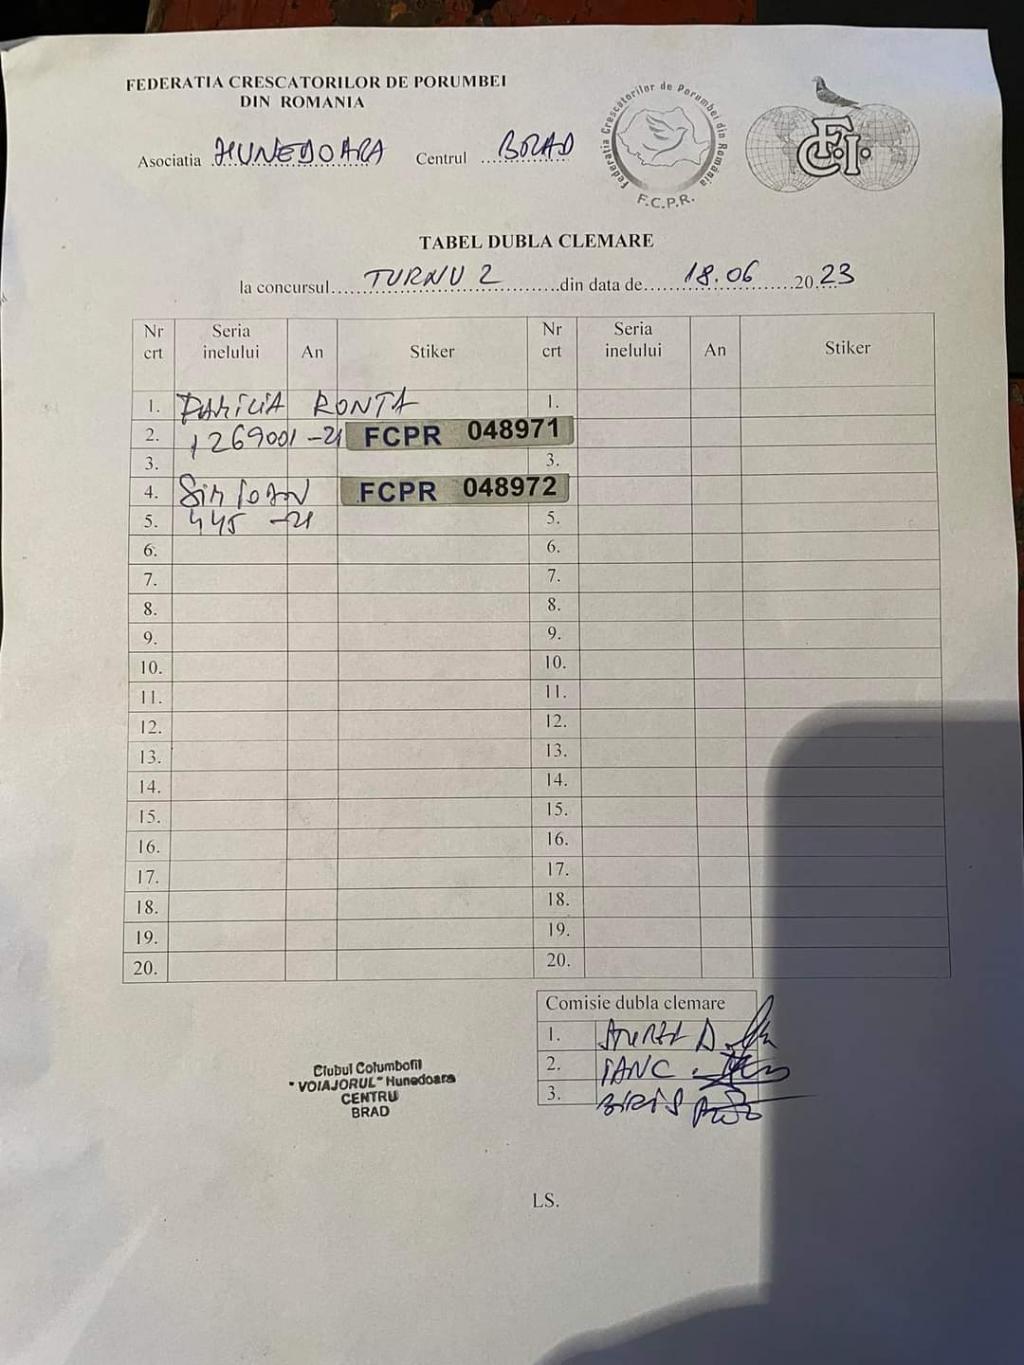 FEDERATIA CRESCATORILOR DE PORUMBEI
DIN ROMANIA
Asociatia HUNEDOARA Centrul BRAD
Federatia Crescatorilor de Porumbei din Romania
F.C.P.R.
F.C.I.
TABEL DUBLA CLEMARE
la concursul TURNU 2 din data de 18.06 2023
Nr crt Seria inelului An Stiker Nr crt Seria inelului An Stiker
1. RONTA 1.
2. 1269001 -21 FCPR 048971
3. 3.
4. SIM IOAN FCPR 048972
5. 445 -21 5.
6. 6.
7. 7.
8. 8.
9. 9.
10. 10.
11. 11.
12. 12.
13. 13.
14. 14.
15. 15.
16. 16.
17. 17.
18. 18.
19. 19.
20. 20.
Comisie dubla clemare
1. AUREL D.
2. IANC
3. BIRIS
Clubul Columbofil
"VOIAJORUL" Hunedoara
CENTRU
BRAD
LS.